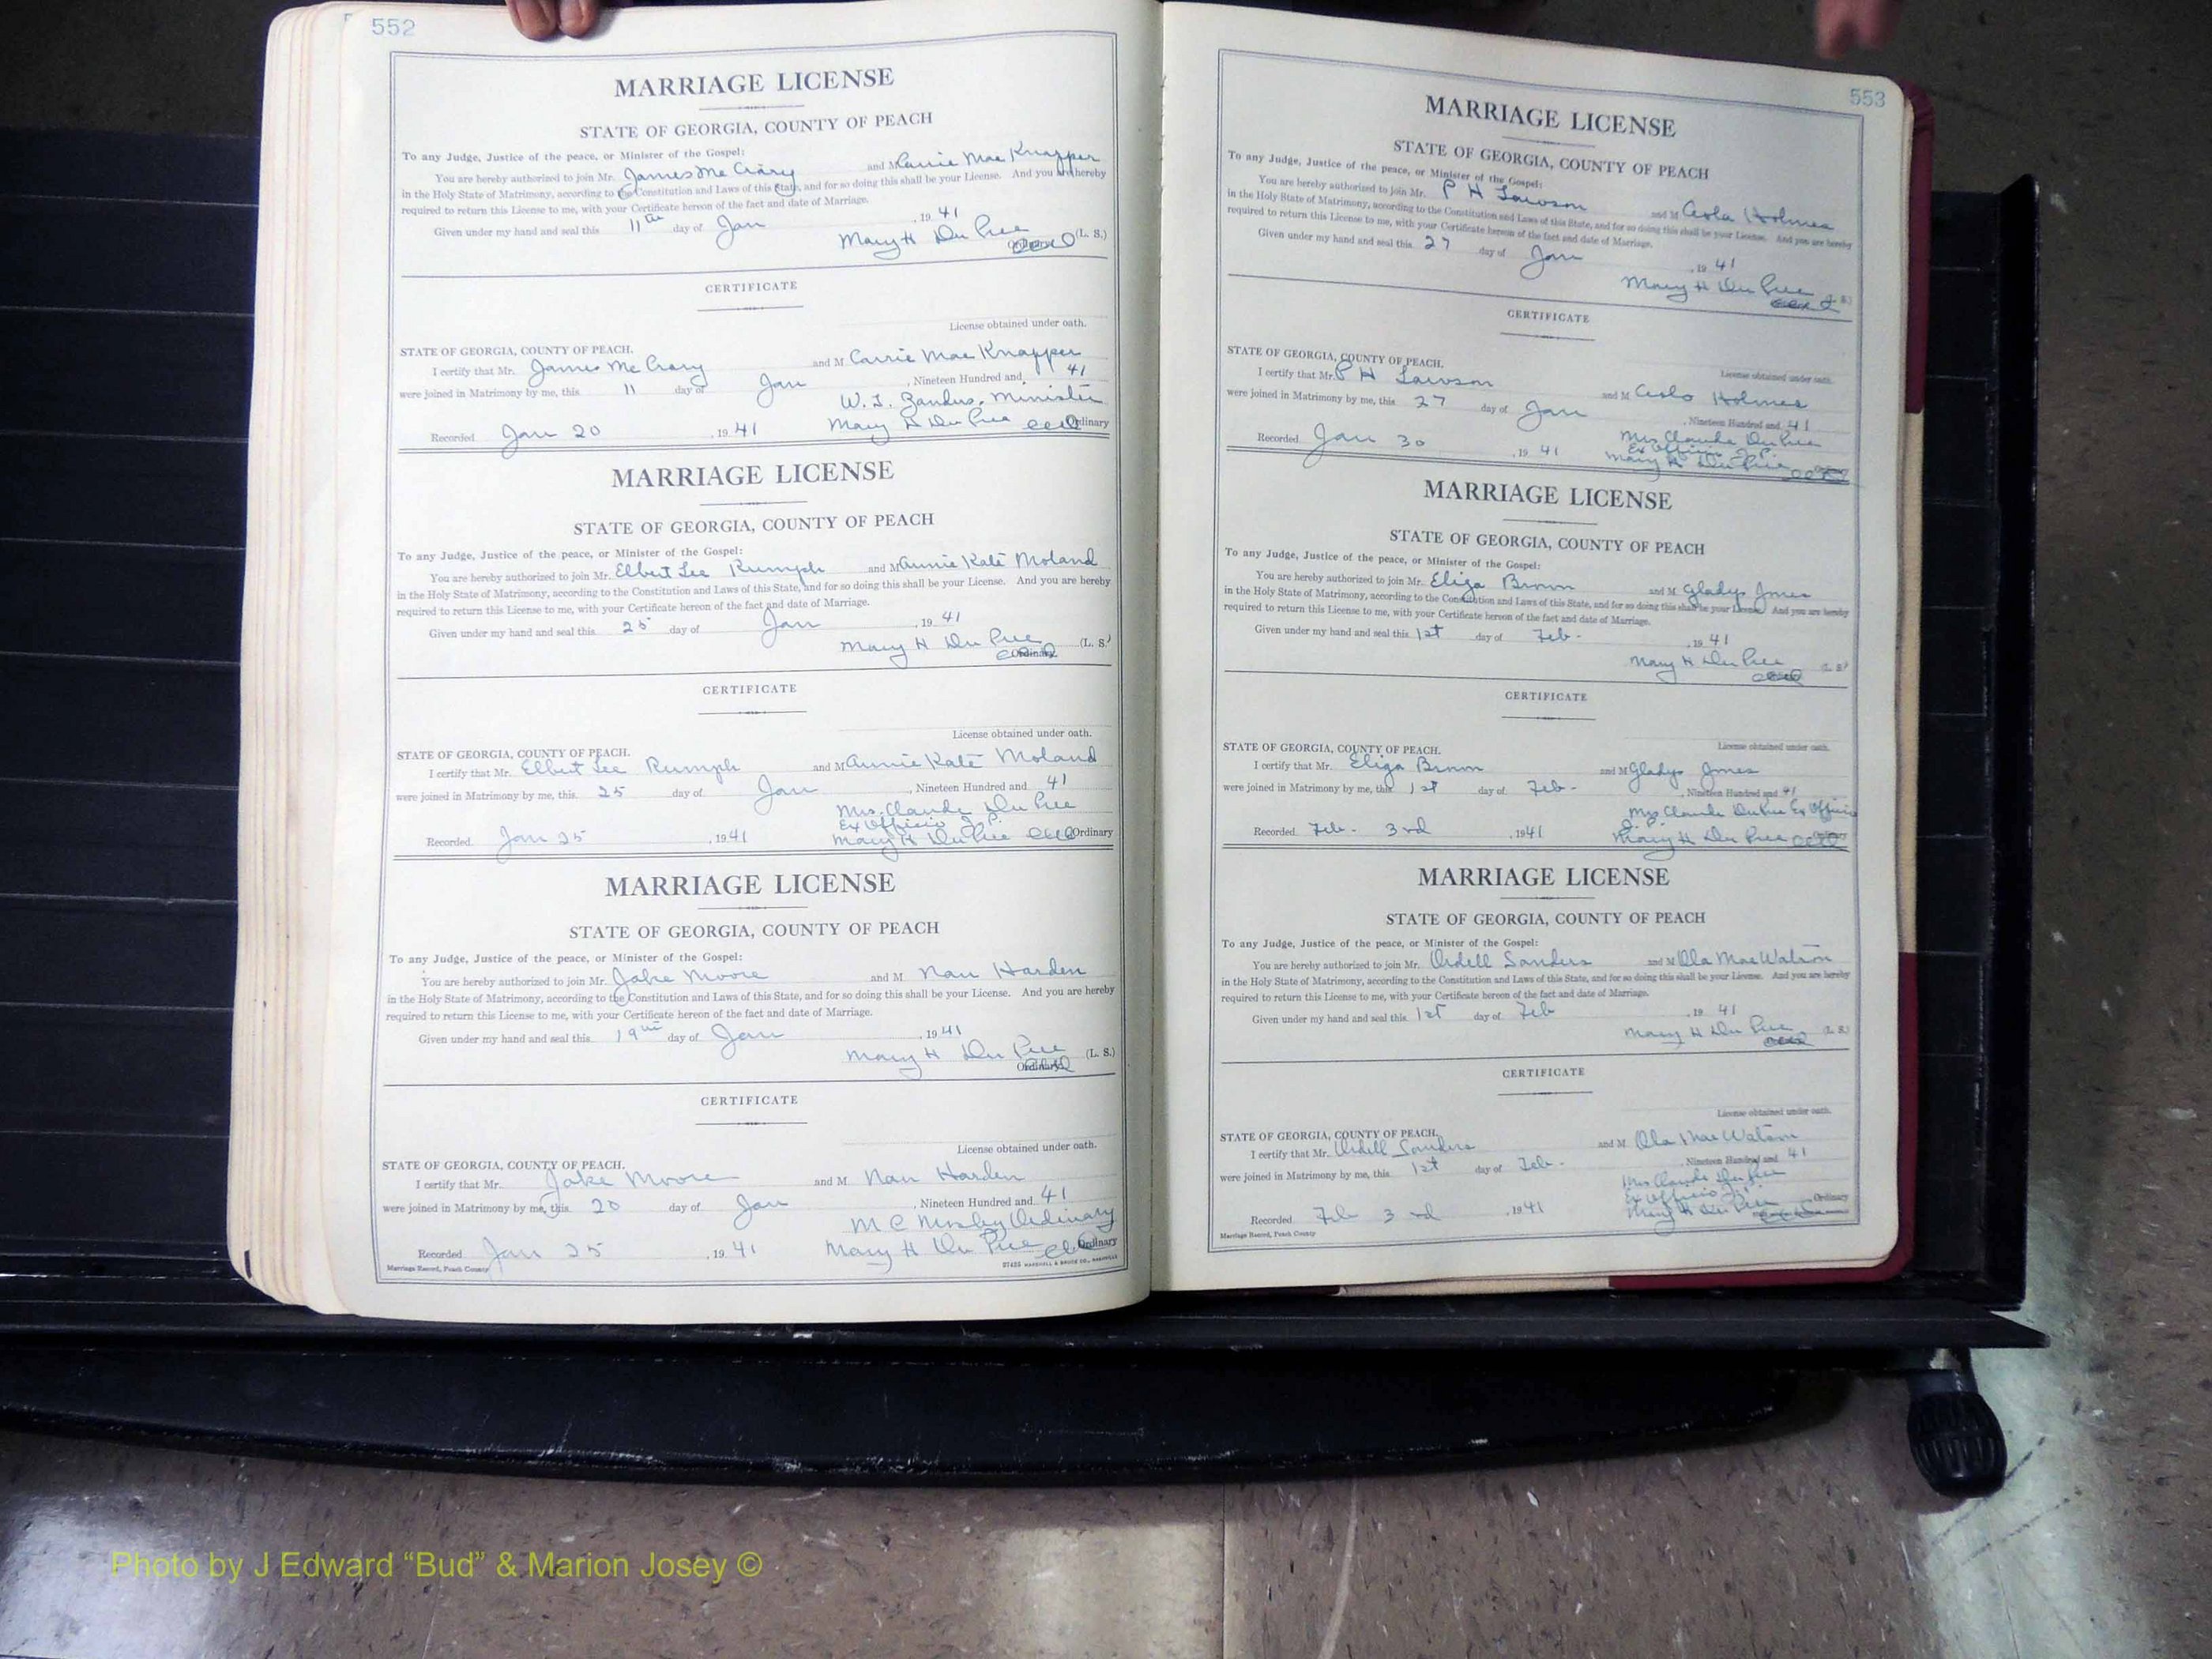 552
MARRIAGE LICENSE
STATE OF GEORGIA, COUNTY OF PEACH
To any Judge, Justice of the peace, or Minister of the Gospel:
You are hereby authorized to join Mr. James Mc Crary and M Carrie Mae Knapper
in the Holy State of Matrimony, according to the Constitution and Laws of this State, and for so doing this shall be your License. And you are hereby
required to return this License to me, with your Certificate hereon of the fact and date of Marriage.
Given under my hand and seal this 11th day of Jan , 19 41
Mary H Du Pree (L. S.)
CERTIFICATE
License obtained under oath.
STATE OF GEORGIA, COUNTY OF PEACH.
I certify that Mr. James Mc Crary and M Carrie Mae Knapper
were joined in Matrimony by me, this 11 day of Jan , Nineteen Hundred and 41
W. J. Minister
Recorded Jan 20 , 19 41 Mary H Du Pree Ordinary
MARRIAGE LICENSE
STATE OF GEORGIA, COUNTY OF PEACH
To any Judge, Justice of the peace, or Minister of the Gospel:
You are hereby authorized to join Mr. Elbert Lee Rumph and M Annie Kate Moland
in the Holy State of Matrimony, according to the Constitution and Laws of this State, and for so doing this shall be your License. And you are hereby
required to return this License to me, with your Certificate hereon of the fact and date of Marriage.
Given under my hand and seal this 25 day of Jan , 19 41
Mary H Du Pree (L. S.)
Ordinary
CERTIFICATE
License obtained under oath.
STATE OF GEORGIA, COUNTY OF PEACH.
I certify that Mr. Elbert Lee Rumph and M Annie Kate Moland
were joined in Matrimony by me, this 25 day of Jan , Nineteen Hundred and 41
Mrs. Claude Du Pree
Ex Officio J. P.
Recorded Jan 25 , 19 41 Mary H Du Pree Ordinary
MARRIAGE LICENSE
STATE OF GEORGIA, COUNTY OF PEACH
To any Judge, Justice of the peace, or Minister of the Gospel:
You are hereby authorized to join Mr. Jake Moore and M Nan Harden
in the Holy State of Matrimony, according to the Constitution and Laws of this State, and for so doing this shall be your License. And you are hereby
required to return this License to me, with your Certificate hereon of the fact and date of Marriage.
Given under my hand and seal this 19th day of Jan , 19 41
Mary H Du Pree (L. S.)
Ordinary
CERTIFICATE
License obtained under oath.
STATE OF GEORGIA, COUNTY OF PEACH.
I certify that Mr. Jake Moore and M Nan Harden
were joined in Matrimony by me, this 20 day of Jan , Nineteen Hundred and 41
M C Mosley Ordinary
Recorded Jan 25 , 19 41 Mary H Du Pree Ordinary
Marriage Record, Peach County MARSHALL & BRUCE CO., NASHVILLE
553
MARRIAGE LICENSE
STATE OF GEORGIA, COUNTY OF PEACH
To any Judge, Justice of the peace, or Minister of the Gospel:
You are hereby authorized to join Mr. P H Lawson and M Holmes
in the Holy State of Matrimony, according to the Constitution and Laws of this State, and for so doing this shall be your License. And you are hereby
required to return this License to me, with your Certificate hereon of the fact and date of Marriage.
Given under my hand and seal this 27 day of Jan , 19 41
Mary H Du Pree
CERTIFICATE
License obtained under oath.
STATE OF GEORGIA, COUNTY OF PEACH.
I certify that Mr. P H Lawson and M Holmes
were joined in Matrimony by me, this 27 day of Jan , Nineteen Hundred and 41
Mrs Claude Du Pree
Ex Officio J. P.
Recorded Jan 30 , 19 41 Mary H Du Pree
MARRIAGE LICENSE
STATE OF GEORGIA, COUNTY OF PEACH
To any Judge, Justice of the peace, or Minister of the Gospel:
You are hereby authorized to join Mr. Eliga Brown and M Gladys Jones
in the Holy State of Matrimony, according to the Constitution and Laws of this State, and for so doing this shall be your License. And you are hereby
required to return this License to me, with your Certificate hereon of the fact and date of Marriage.
Given under my hand and seal this 1st day of Feb. , 19 41
Mary H Du Pree (L. S.)
CERTIFICATE
License obtained under oath.
STATE OF GEORGIA, COUNTY OF PEACH.
I certify that Mr. Eliga Brown and M Gladys Jones
were joined in Matrimony by me, this 1st day of Feb. , Nineteen Hundred and 41
Mrs Claude Du Pree Ex Officio
J. P.
Recorded Feb. 3rd , 19 41 Mary H Du Pree
MARRIAGE LICENSE
STATE OF GEORGIA, COUNTY OF PEACH
To any Judge, Justice of the peace, or Minister of the Gospel:
You are hereby authorized to join Mr. Ordell Sanders and M Ola Mae Watson
in the Holy State of Matrimony, according to the Constitution and Laws of this State, and for so doing this shall be your License. And you are hereby
required to return this License to me, with your Certificate hereon of the fact and date of Marriage.
Given under my hand and seal this 1st day of Feb , 19 41
Mary H Du Pree (L. S.)
CERTIFICATE
License obtained under oath.
STATE OF GEORGIA, COUNTY OF PEACH.
I certify that Mr. Ordell Sanders and M Ola Mae Watson
were joined in Matrimony by me, this 1st day of Feb. , Nineteen Hundred and 41
Mrs Claude Du Pree
Ex Officio J. P.
Recorded Feb 3rd , 19 41 Mary H Du Pree Ordinary
Marriage Record, Peach County
Photo by J Edward “Bud” & Marion Josey ©